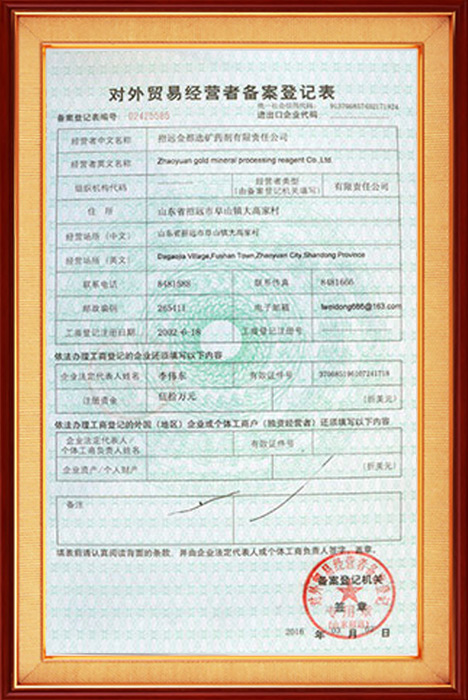 对外贸易经营者备案登记表
统一社会信用代码:
备案登记表编号: 02425585 进出口企业代码
经营者中文名称 招远金都选矿药剂有限责任公司
经营者英文名称 Zhaoyuan gold mineral processing reagent Co.,Ltd.
组织机构代码 ———— 经营者类型 (由备案登记机关填写) 有限责任公司
住 所 山东省招远市阜山镇大高家村
经营场所(中文) 山东省招远市阜山镇大高家村
经营场所(英文) Dagaojia Village,Fushan Town,Zhaoyuan City,Shandong Province
联系电话 8481588 联系传真 8481666
邮政编码 265411 电子邮箱 lweidong666@163.com
工商登记注册日期 2002-6-18 工商登记注册号
依法办理工商登记的企业还须填写以下内容
企业法定代表人姓名 李伟东 有效证件号 370685196107241718
注册资金 伍拾万元 (折美元)
依法办理工商登记的外国(地区)企业或个体工商户(独资经营者)还须填写以下内容
企业法定代表人/ 个体工商负责人姓名 有效证件号
企业资产/个人财产 (折美元)
备注
填表前请认真阅读背面的条款,并由企业法定代表人或个体工商负责人签字、盖章。
备案登记机关
签 章
2016 年 03 月 02 日